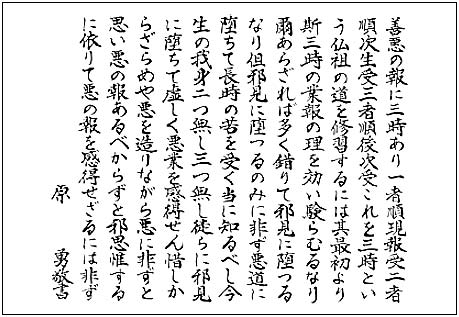 善悪の報に三時あり一者順現報受二者
順次生受三者順後次受これを三時とい
う仏祖の道を修習するには其最初より
斯三時の業報の理を効い験らむるなり
爾あらざれば多く錯りて邪見に堕つる
なり但邪見に堕つるのみに非ず悪道に
堕ちて長時の苦を受く当に知るべし今
生の我身二つ無し三つ無し徒らに邪見
に堕ちて虚しく悪業を感得せん惜しか
らざらめや悪を造りながら悪に非ずと
思い悪の報あるべからずと邪思惟する
に依りて悪の報を感得せざるには非ず
原 勇敬書